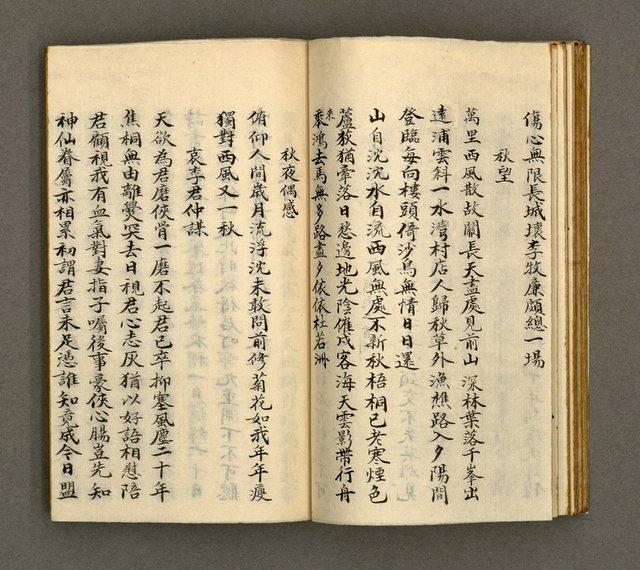 傷心無限長城壞李牧廉頗總一場
秋望
萬里西風散故關長天盡處見前山深林葉落千峯出
遠浦雲斜一水灣村店人歸秋草外漁樵路入夕陽間
登臨每向樓頭倚沙鳥無情日日還
山自沈沈水自流西風無處不新秋梧桐已老寒煙色
蘆荻猶牽落日愁邊地光陰催戍客海天雲影帶行舟
來
乘鴻去馬無多路盡夕依依杜若洲
秋夜偶感
俯仰人間歲月流浮沈未敢問前修菊花如我年年瘦
獨對西風又一秋
哀李君仲謀
天欲為君磨俠骨一磨不起君已卒抑塞風塵二十年
焦桐無由離爨突去日視君心志灰猶以好語相慰陪
君顧視我有血氣對妻指子囑後事豪俠心腸豈先知
神仙眷屬亦相累初謂君言未足憑誰知竟成今日盟